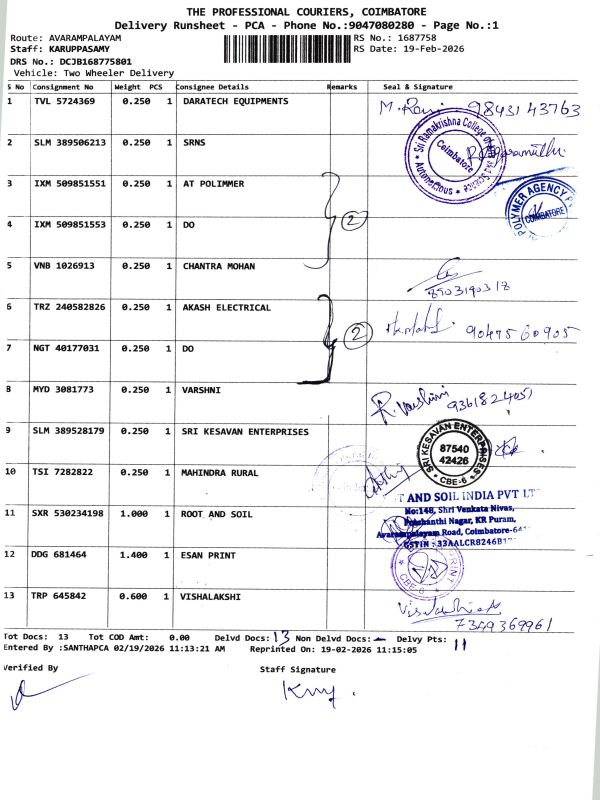 THE PROFESSIONAL COURIERS, COIMBATORE
Delivery Runsheet - PCA - Phone No.:9047080280 - Page No.:1
Route: AVARAMPALAYAM RS No.: 1687758
Staff: KARUPPASAMY RS Date: 19-Feb-2026
DRS No.: DCJB168775801
Vehicle: Two Wheeler Delivery
S No Consignment No Weight PCS Consignee Details Remarks Seal & Signature
1 TVL 5724369 0.250 1 DARATECH EQUIPMENTS M. Ravi 98431 43763
2 SLM 389506213 0.250 1 SRNS
Sri Ramakrishna College of
Coimbatore
Autonomous
3 IXM 509851551 0.250 1 AT POLIMMER
POLYMER AGENCY
COIMBATORE
4 IXM 509851553 0.250 1 DO 2
5 VNB 1026913 0.250 1 CHANTRA MOHAN
8903190318
6 TRZ 240582826 0.250 1 AKASH ELECTRICAL 2 9047560905
7 NGT 40177031 0.250 1 DO
8 MYD 3081773 0.250 1 VARSHNI R. Varshini 9361824051
9 SLM 389528179 0.250 1 SRI KESAVAN ENTERPRISES
SRI KESAVAN ENTERPRISES
87540
42426
CBE-6
10 TSI 7282822 0.250 1 MAHINDRA RURAL
T AND SOIL INDIA PVT LT
11 SXR 530234198 1.000 1 ROOT AND SOIL
No:148, Shri Venkata Nivas,
Prashanthi Nagar, KR Puram,
Avarampalayam Road, Coimbatore-64
GSTIN : 33AALCR8246B1
12 DDG 681464 1.400 1 ESAN PRINT
PRINT
CBE-6
13 TRP 645842 0.600 1 VISHALAKSHI
7349369961
Tot Docs: 13 Tot COD Amt: 0.00 Delvd Docs: 13 Non Delvd Docs: - Delvy Pts: 11
Entered By :SANTHAPCA 02/19/2026 11:13:21 AM Reprinted On: 19-02-2026 11:15:05
Verified By Staff Signature